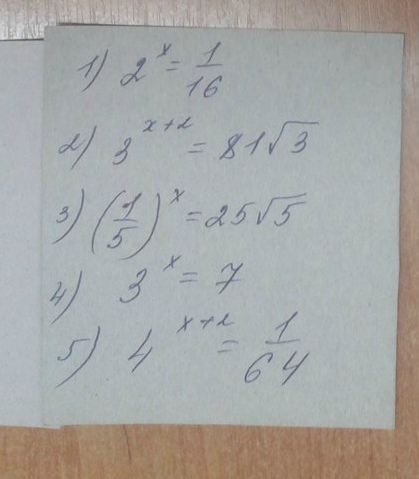 1) 2^x = 1/16
2) 3^(x+2) = 81√3
3) (1/5)^x = 25√5
4) 3^x = 7
5) 4^(x+2) = 1/64